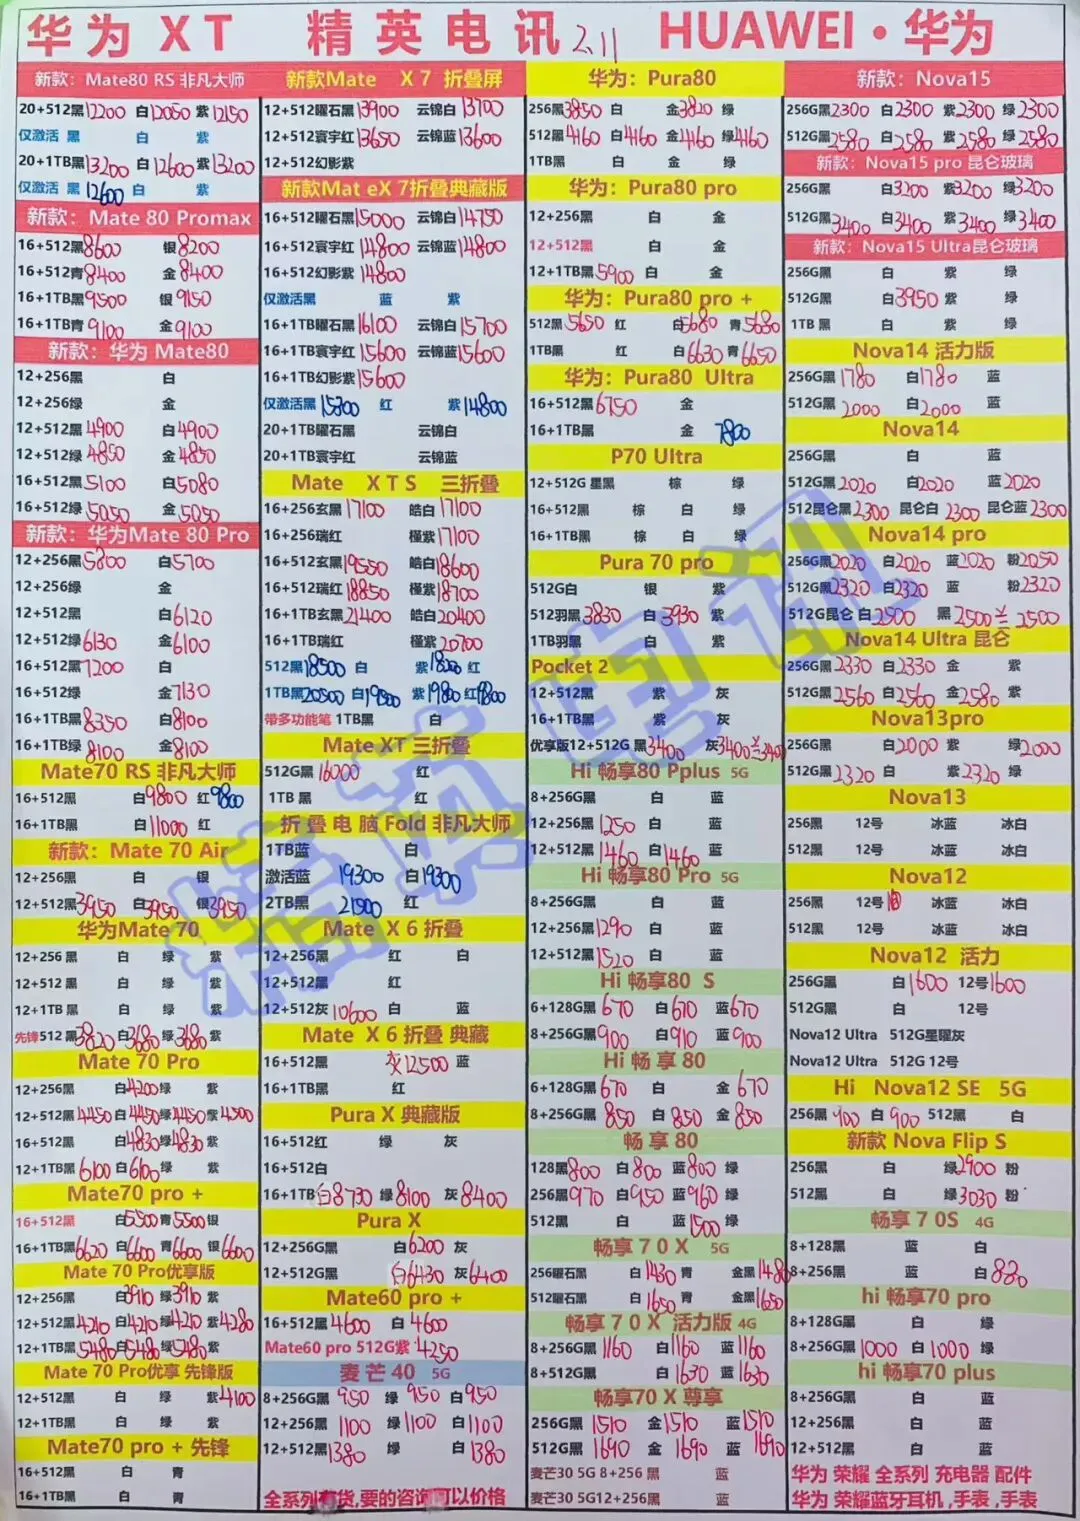 华为 XT 精英电讯 2.11 HUAWEI·华为
新款：Mate80 RS 非凡大师
20+512黑12200 白12050 紫12150
仅激活 黑 白 紫
20+1TB黑13200 白12600 紫13200
仅激活 黑12600 白 紫
新款：Mate 80 Promax
16+512黑8600 银8200
16+512青8400 金8400
16+1TB黑9500 银9150
16+1TB青9100 金9100
新款：华为 Mate80
12+256黑 白
12+256绿 金
12+512黑4900 白4900
12+512绿4850 金4850
16+512黑5100 白5080
16+512绿5050 金5050
新款：华为Mate 80 Pro
12+256黑5800 白5700
12+256绿 金
12+512黑 白6120
12+512绿6130 金6100
16+512黑7200 白
16+512绿 金7130
16+1TB黑8350 白8100
16+1TB绿8100 金8100
Mate70 RS 非凡大师
16+512黑 白9800 红9800
16+1TB黑 白11000 红
新款：Mate 70 Air
12+256黑 白 银
12+512黑3950 白3950 银3950
华为Mate 70
12+256 黑 白 绿 紫
12+512 黑 白 绿 紫
12+1TB 黑 白 绿 紫
先锋512 黑3820 白3680 绿3680 紫
Mate 70 Pro
12+256黑 白4200 绿 紫
12+512黑4450 白4450 绿4450 紫4500
16+512黑 白4830 绿4830 紫
12+1TB黑6100 白6100 绿 紫
Mate70 pro +
16+512黑 白5500 青5500 银
16+1TB黑6620 白6600 青6600 银6600
Mate 70 Pro优享版
12+256黑 白3910 绿3910 紫
12+512黑4210 白4210 绿4210 紫4280
12+1TB黑5480 白5480 绿5480 紫
Mate 70 Pro优享 先锋版
12+512黑 白 绿 紫4100
12+1TB黑 白 绿 紫
Mate70 pro + 先锋
16+512黑 白 青
16+1TB黑 白 青
新款Mate X 7 折叠屏
12+512曜石黑13900 云锦白13700
12+512寰宇红13650 云锦蓝13600
12+512幻影紫
新款Mat eX 7折叠典藏版
16+512曜石黑15000 云锦白14750
16+512寰宇红14800 云锦蓝14800
16+512幻影紫14800
仅激活黑 蓝 紫
16+1TB曜石黑16100 云锦白15700
16+1TB寰宇红15600 云锦蓝15600
16+1TB幻影紫15600
仅激活黑15300 红 紫14800
20+1TB曜石黑 云锦白
20+1TB寰宇红 云锦蓝
Mate X T S 三折叠
16+256玄黑17100 皓白17100
16+256瑞红 槿紫17100
16+512玄黑19550 皓白18600
16+512瑞红18850 槿紫18700
16+1TB玄黑21400 皓白20400
16+1TB瑞红 槿紫20700
512黑18500 白 紫 红
1TB黑20500 白 紫 红
带多功能笔 1TB黑 白
Mate XT 三折叠
512G黑16000 红
1TB 黑 红
折 叠 电 脑 Fold 非凡大师
1TB蓝 白
激活蓝 19300 白19300
2TB黑 21500 红
Mate X 6 折叠
12+256黑 红 白
12+512黑 红
12+512灰10600 白 蓝
Mate X 6 折叠 典藏
16+512黑 灰12500 蓝
16+1TB黑 红
Pura X 典藏版
16+512红 绿 灰
16+512白
16+1TB白8730 绿8100 灰8400
Pura X
12+256G黑 白6200 灰
12+512G黑 白6430 灰6400
Mate60 pro +
16+512黑4600 白4600
Mate60 pro 512G紫4250
麦芒 40 5G
8+256G黑 950 绿 950 白950
12+256黑 1100 绿1100 白1100
12+512黑1380 绿 白1380
全系列有货,要的咨询可以价格
华为：Pura80
256黑3850 白 金3820 绿
512黑4160 白4160 金4160 绿4160
1TB黑 白 金 绿
华为：Pura80 pro
12+256黑 白 金
12+512黑 白 金
12+1TB黑5900 白 金
华为：Pura80 pro +
512黑5650 红 白5680 青5680
1TB黑 红 白6630 青6650
华为：Pura80 Ultra
16+512黑6750 金
16+1TB黑 金 7800
P70 Ultra
12+512G 星黑 棕 绿
16+512黑 棕 白 绿
16+1TB黑 棕 白 绿
Pura 70 pro
512G白 银 紫
512羽黑3830 白3930 紫
1TB羽黑 白 紫
Pocket 2
12+512黑 紫 灰
16+1TB黑 紫 灰
优享版12+512G 黑3400 灰3400 兰3400
Hi 畅享80 Pplus 5G
8+256G黑 白 蓝
12+256黑1250 白 蓝
12+512黑1460 白1460 蓝
Hi 畅享80 Pro 5G
8+256G黑 白 蓝
12+256黑1290 白 蓝
12+512黑1520 白 蓝
Hi 畅享80 S
6+128G黑670 白670 蓝670
8+256G黑900 白910 蓝900
Hi 畅 享 80
6+128G黑670 白 金670
8+256G黑850 白850 金850
畅 享 80
128黑800 白800 蓝800 绿
256黑970 白950 蓝960 绿
512黑 白 蓝1500 绿
畅享 7 0 X 5G
256曜石黑 白1430 青 金黑1480
512曜石黑 白1650 青 金黑1650
畅享 7 0 X 活力版 4G
8+256G黑1160 白1160 蓝1160
8+512G黑 白1630 蓝1630
畅享70 X 尊享
256G黑1510 金1510 蓝1510
512G黑1690 金1690 蓝1690
麦芒30 5G 8+256 黑 蓝
麦芒30 5G12+256黑 蓝
新款：Nova15
256G黑2300 白2300 紫2300 绿2300
512G黑2580 白2580 紫2580 绿2580
新款：Nova15 pro 昆仑玻璃
256G黑 白3200 紫3200 绿3200
512G黑3400 白3400 紫3400 绿3400
新款：Nova15 Ultra昆仑玻璃
256G黑 白 紫 绿
512G黑 白3950 紫 绿
1TB 黑 白 紫 绿
Nova14 活力版
256G黑1780 白1780 蓝
512G黑2000 白2000 蓝
Nova14
256G黑 白 蓝
512G黑2020 白2020 蓝2020
512昆仑黑2300 昆仑白2300 昆仑蓝2300
Nova14 pro
256G黑2020 白2020 蓝2020 粉2050
512G黑2320 白2320 蓝 粉2320
512G昆仑 白2500 黑2500 兰2500
Nova14 Ultra 昆仑
256G黑2330 白2330 金 紫
512G黑2560 白2560 金2580 紫
Nova13pro
256G黑 白2000 紫 绿2000
512G黑2320 白 紫2320 绿
Nova13
256黑 12号 冰蓝 冰白
512黑 12号 冰蓝 冰白
Nova12
256黑 12号 冰蓝 冰白
512黑 12号 冰蓝 冰白
Nova12 活力
256G黑 白1600 12号1600
512G黑 白 12号
Nova12 Ultra 512G星曜灰
Nova12 Ultra 512G 12号
Hi Nova12 SE 5G
256黑 900 白900 512黑 白
新款 Nova Flip S
256黑 白 绿2900 粉
512黑 白 绿3030 粉
畅享 7 0S 4G
8+128黑 蓝 白
8+256黑 蓝 白820
hi 畅享70 pro
8+128G黑 白 绿
8+256G黑1000 白1000 绿
hi 畅享70 plus
8+256G黑 白 蓝
12+256黑 白 蓝
12+512黑 白 蓝
华为 荣耀 全系列 充电器 配件
华为 荣耀蓝牙耳机,手表,手表
精英电讯